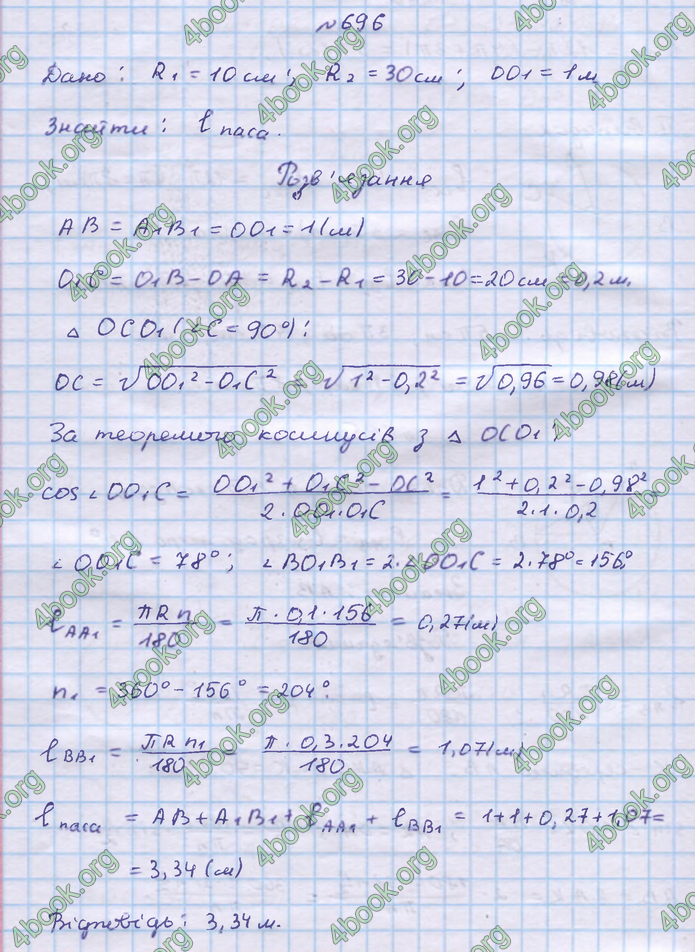 №696
Дано: R₁ = 10 см; R₂ = 30 см; OO₁ = 1 м
Знайти: l паса.
Розв'язання
AB = A₁B₁ = OO₁ = 1 (м)
O₁C = O₁B - OA = R₂ - R₁ = 30 - 10 = 20 см = 0,2 м.
△ OCO₁ (∠C = 90°):
OC = √OO₁² - O₁C² = √1² - 0,2² = √0,96 = 0,98 (м)
За теоремою косинусів з △ OCO₁:
cos ∠OO₁C = (OO₁² + O₁C² - OC²) / (2·OO₁·O₁C) = (1² + 0,2² - 0,98²) / (2·1·0,2)
∠OO₁C = 78°; ∠BO₁B₁ = 2·∠OO₁C = 2·78° = 156°.
l AA₁ = πRn / 180 = π·0,1·156 / 180 = 0,27 (м)
n₁ = 360° - 156° = 204°.
l BB₁ = πRn₁ / 180 = π·0,3·204 / 180 = 1,07 (м)
l паса = AB + A₁B₁ + l AA₁ + l BB₁ = 1+1+0,27+1,07 =
= 3,34 (м)
Відповідь: 3,34 м.
4book.org